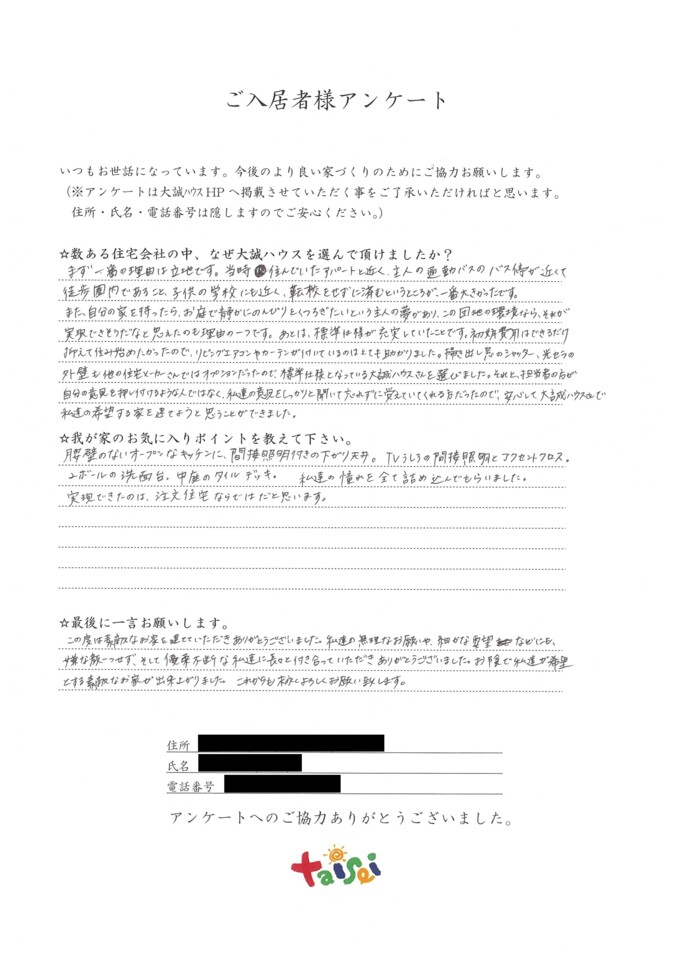 ご入居者様アンケート
いつもお世話になっています。今後のより良い家づくりのためにご協力お願いします。
（※アンケートは大誠ハウスHPへ掲載させていただく事をご了承いただければと思います。
住所・氏名・電話番号は隠しますのでご安心ください。）
☆数ある住宅会社の中、なぜ大誠ハウスを選んで頂けましたか？
まず一番の理由は立地です。当時住んでいたアパートと近く、主人の通勤バスのバス停が近くて
徒歩圏内であること、子供の学校にも近く、転校をせずに済むというところが、一番大きかったです。
また、自分の家を持ったら、お庭で静かにのんびりとくつろぎたいという主人の夢があり、この団地の環境なら、それが
実現できそうだなと思えたのも理由の一つです。あとは、標準仕様が充実していたことです。初期費用はできるだけ
抑えて住み始めたかったので、リビングエアコンやカーテンが付いているのはとても助かりました。掃き出し窓のシャッター、光セラの
外壁も他の住宅メーカーさんではオプションだったので、標準仕様となっている大誠ハウスさんを選びました。それと、担当者の方が
自分の意見を押し付けるようなんではなく、私達の意見をしっかりと聞いて忘れずに覚えていてくれる方だったので、安心して大誠ハウスさんで
私達の希望する家を建てようと思うことができました。
☆我が家のお気に入りポイントを教えて下さい。
腰壁のないオープンなキッチンに、間接照明付きの下がり天井。TVうしろの間接照明とアクセントクロス。
2ボールの洗面台、中庭のタイルデッキ。私達の憧れを全て詰め込んでもらいました。
実現できたのは、注文住宅ならではだと思います。
☆最後に一言お願いします。
この度は素敵なお家を建てていただきありがとうございました。私達の無理なお願いや、細かな要望などにも、
嫌な顔一つせず、そして優柔不断な私達に長々と付き合っていただきありがとうございました。お陰で私達が希望
とする素敵なお家が出来上がりました。これからも末永くよろしくお願い致します。
住所
氏名
電話番号
アンケートへのご協力ありがとうございました。
taisei